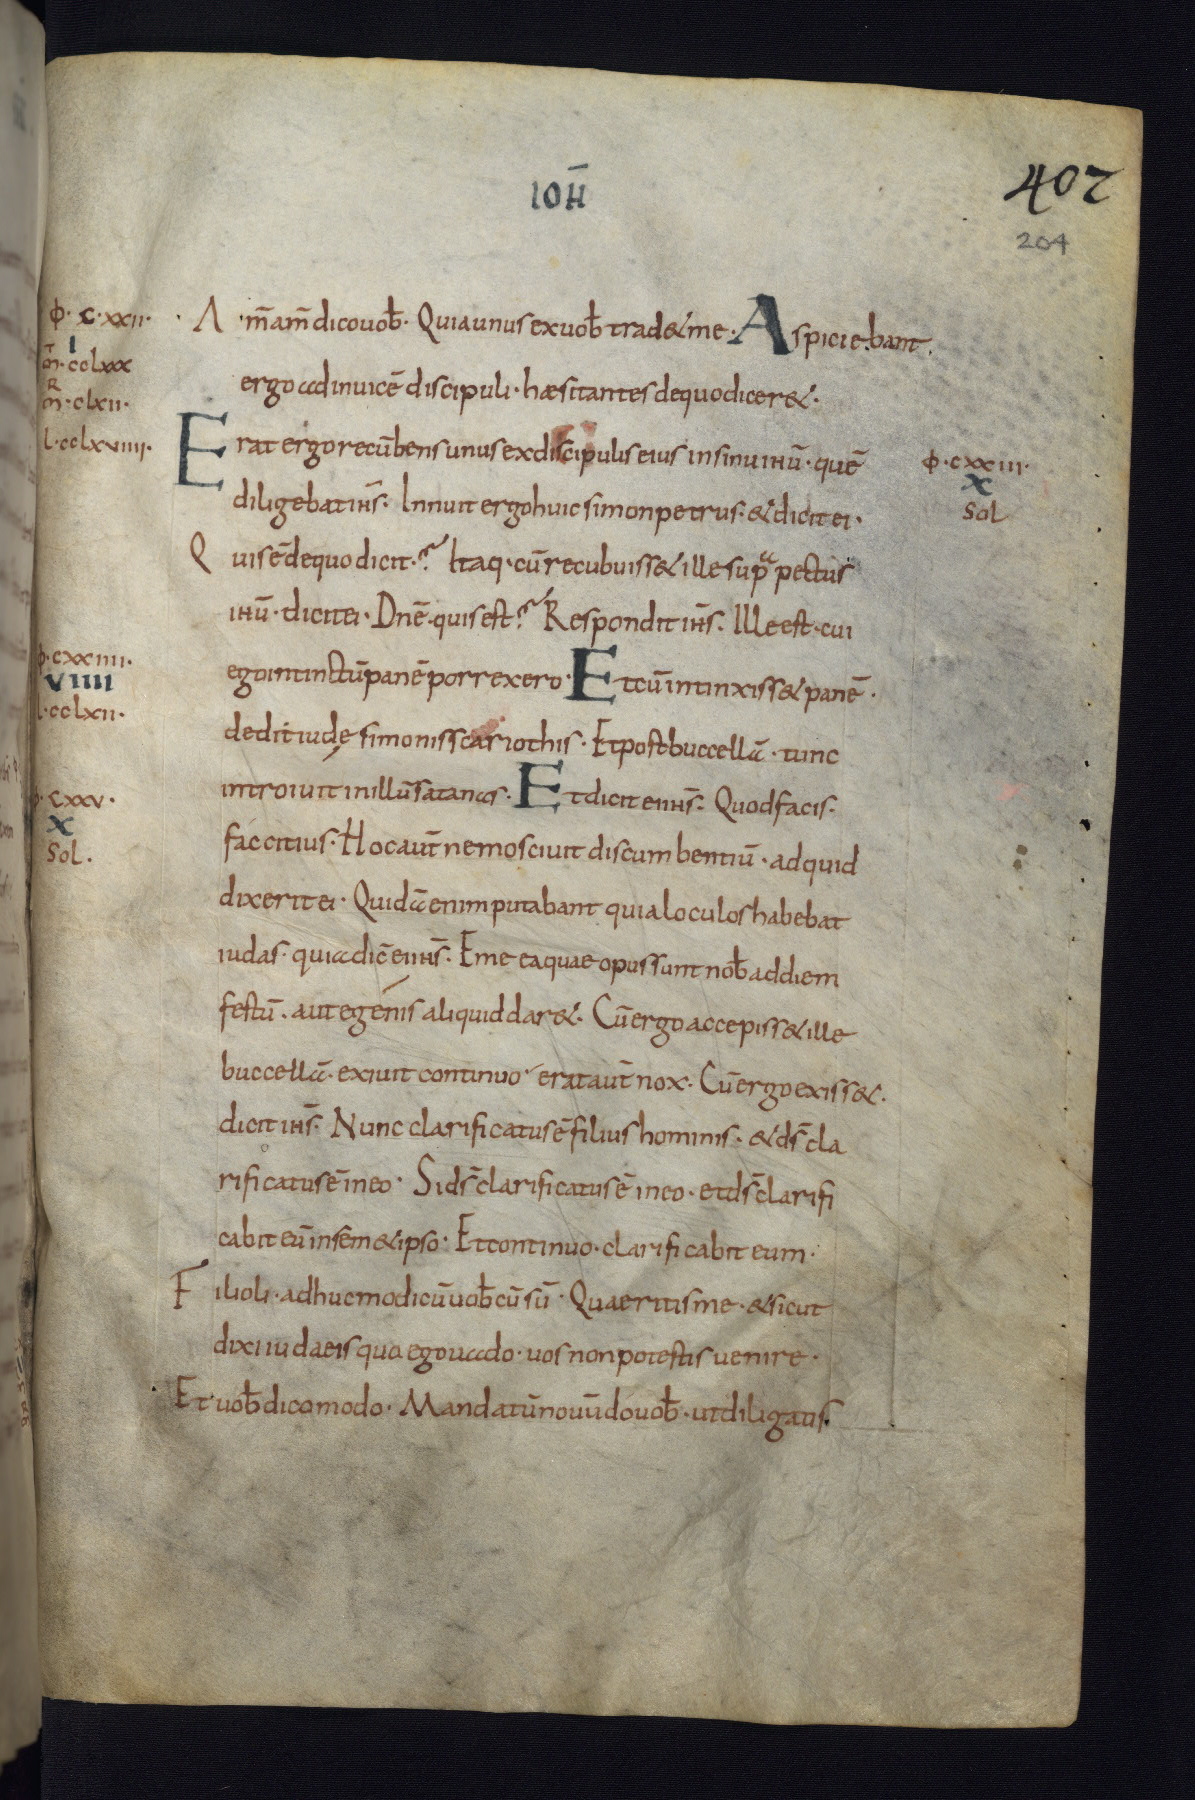 IOH̄
402
204
φ· C·XXII·
I
m̄·cclxx
m̄R·clxii·
l·cclxviiii·
A m̄ am̄ dico uob̄· Quia unus ex uob̄ trad& me· Aspiciebant
ergo ad inuicē discipuli· hæsitantes de quo dicer&·
Erat ergo recūbens unus ex discipulis eius in sinu ihū· quē
φ·cxxiii·
X
Sol
diligebat ihs̄· Innuit ergo huic simon petrus· & dicit ei·
Quis ē de quo dicit·? Itaq· cū recubuiss& ille supra pectus
ihū· dicit ei· Dnē· quis est? Respondit ihs̄· Ille est· cui
φ·cxxiiii·
VIIII
l·cclxii·
ego intinctū panē porrexero· Et cū intinxiss& panē·
dedit iudę simonis scariothis· Et post buccellā· tunc
introiuit in illū satanas· Et dicit ei ihs̄· Quod facis·
φ·cxxv·
X
Sol·
fac citius· Hoc aut̄ nemo sciuit discumbentiū· ad quid
dixerit ei· Quidā enim putabant quia loculos habebat
iudas· quia dic̄ ei ihs̄· Eme ea quae opus sunt nob̄ ad diem
festū· aut egenis aliquid dar&· Cū ergo accepiss& ille
buccellā· exiuit continuo· erat aut̄ nox· Cū ergo exiss&·
dicit ihs̄· Nunc clarificatus ē filius hominis· & ds̄ cla
rificatus ē in eo· Si ds̄ clarificatus ē in eo· et ds̄ clarifi
cabit eū in sem&ipso· Et continuo· clarificabit eum·
Filioli· adhuc modicū uob̄cū sū· Quaeritis me· & sicut
dixi iudaeis quo ego uado· uos non potestis uenire·
Et uob̄ dico modo· Mandatū nouū do uob̄· ut diligatis